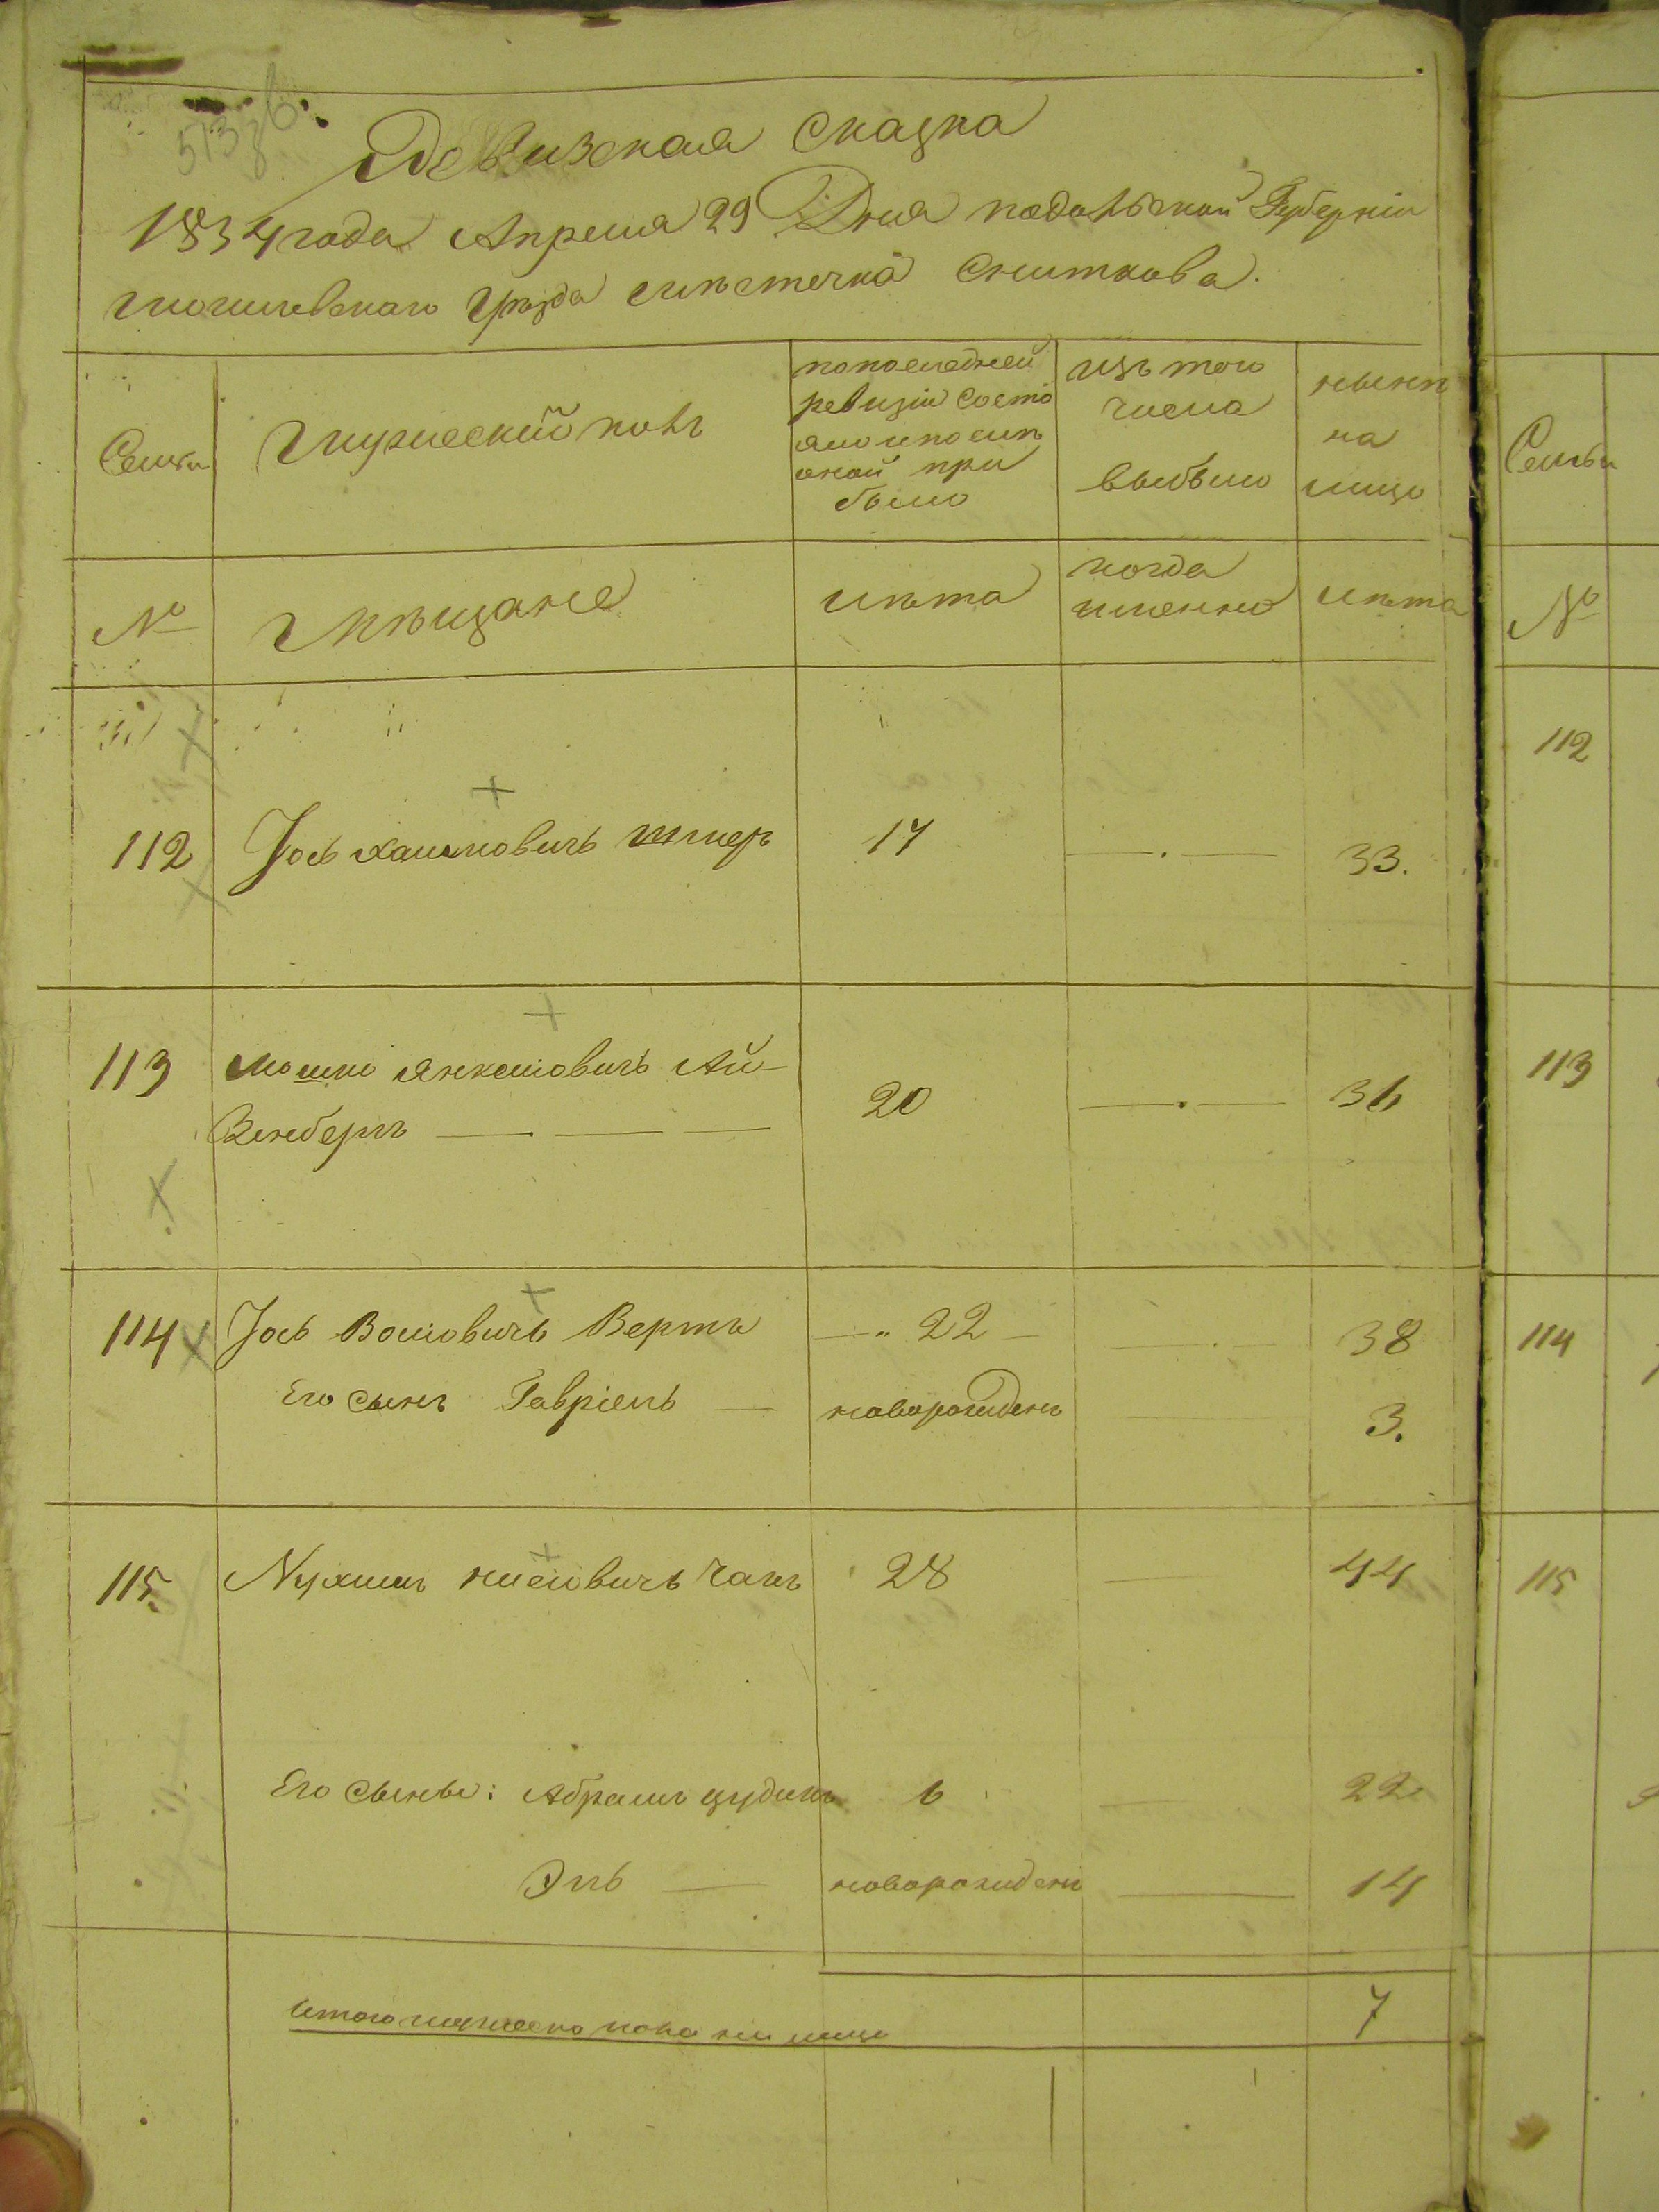 Ревизская сказка
1834 года Апреля 29 Дня подольской Губерніи
могилевскаго Уѣзда мѣстечка Сниткова.
Семьи
мужескій полъ
по последней
ревизіи состо
яло и послѣ
оной при
было
изъ того
числа
выбыло
нынѣ
на
лицо
Семьи
№
мѣщане
лѣта
когда
именно
лѣта
№
112
112 Іось Хаимовичъ 17 33.
113 Мошко Янкелiовичъ Ай-
Венбергъ 20 36
113
114 Іось Волiовичъ Вертъ 22 38
Его сынъ Гавріель новорожденъ 3.
114
115 Нухимъ Чакъ 28 44
115
Его сыновья: Абрамъ 6 22
Эль новорожденъ 14
Итого мужеска пола на лицо 7